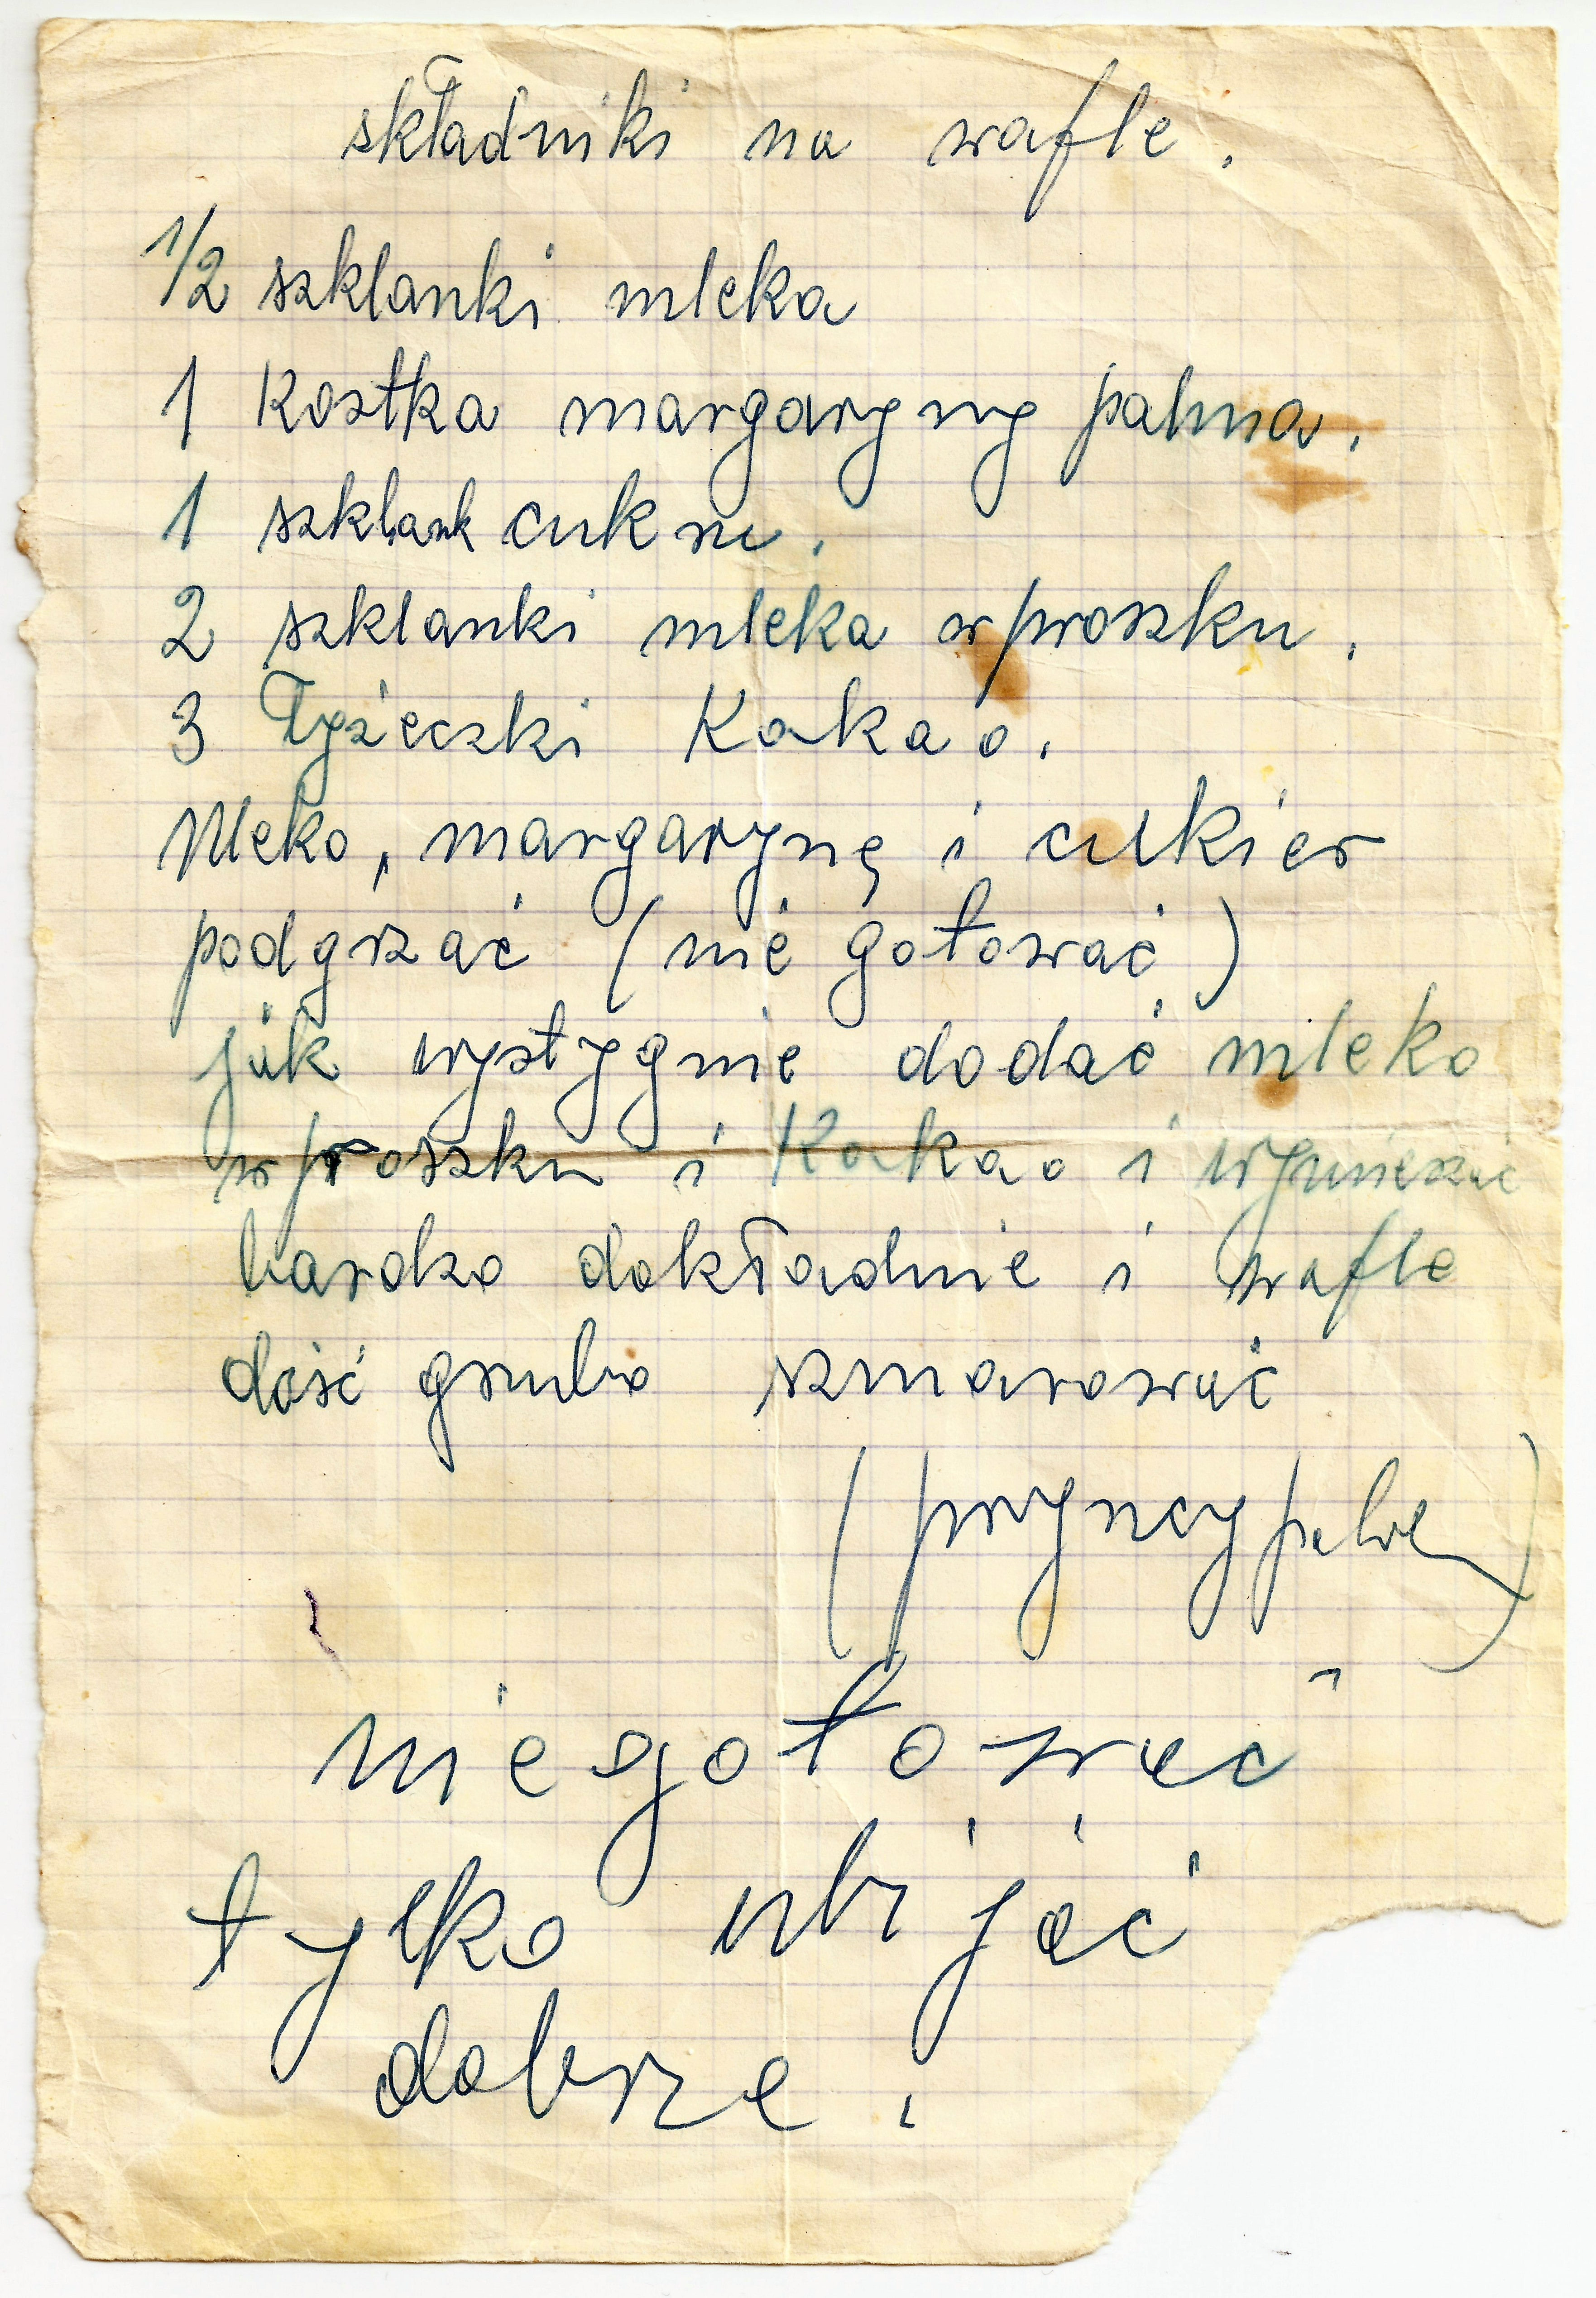 składniki na wafle.
1/2 szklanki mleka
1 kostka margaryny palma.
1 szklank cukru.
2 szklanki mleka w proszku.
3 Łyżeczki Kakao.
Mleko, margarynę i cukier
podgrzać (nie gotować)
jak wystygnie dodać mleko
w proszku i Kakao i wymieszać
bardzo dokładnie i wafle
dość grubo szmarować
(pryncypalve)
nie gotować
tylko ubijać
dobrze.